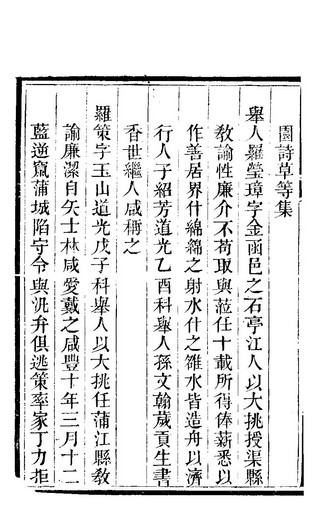 園詩草等集
舉人羅瑩璋字金函邑之石亭江人以大挑授渠縣
敎諭性廉介不苟取與蒞任十載所得俸薪悉以
作善居界什綿綿之射水什之雒水皆造舟以濟
行人子紹芳道光乙酉科舉人孫文翰歲貢生書
香世繼人咸稱之
羅策字玉山道光戊子科舉人以大挑任蒲江縣敎
諭廉潔自矢士林咸愛戴之咸豐十年三月十二
藍逆竄蒲城陷守令與汛弁俱逃策率家丁力拒